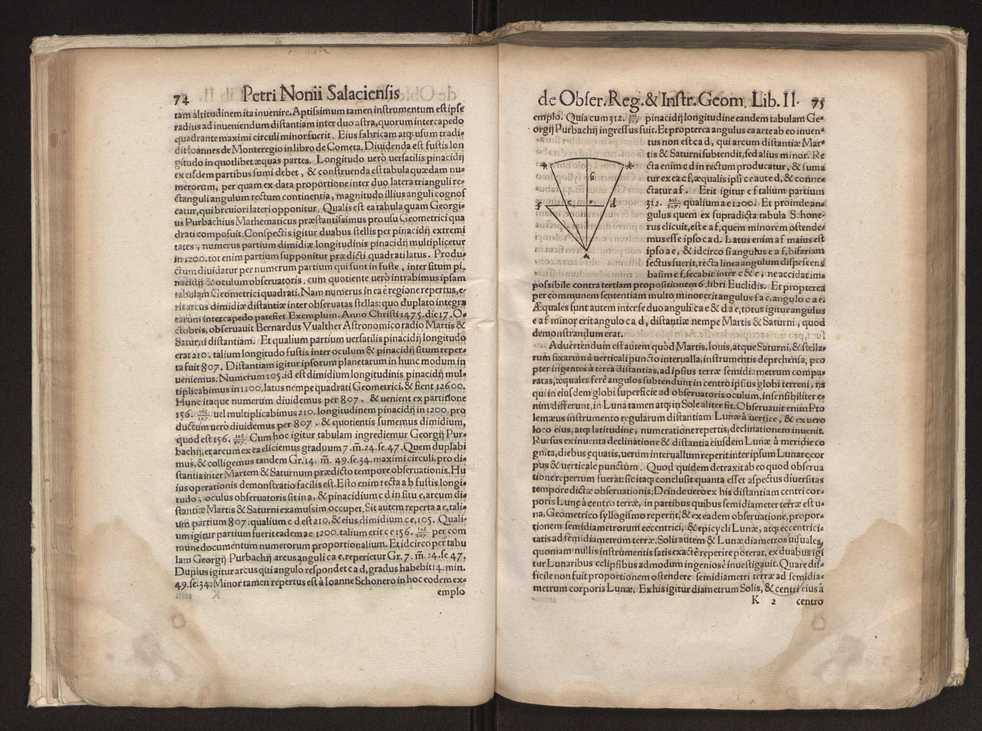 74 Petri Nonii Salaciensis
tam altitudinem ita inuenire. Aptissimum tamen instrumentum est ipse
radius ad inueniendum distantiam inter duo astra, quorum intercapedo
quadrante maximi circuli minor fuerit. Eius fabricam atqʒ usum tradi-
dit Ioannes de Monteregio in libro de Cometa. Diuidenda est fustis lon
gitudo in quotlibet æquas partes. Longitudo uerò uersatilis pinacidij
ex eisdem partibus sumi debet, & construenda est tabula quædam nu-
merorum, per quam ex data proportione inter duo latera trianguli re-
ctanguli angulum rectum continentia, magnitudo illius anguli cognos
catur, qui breuiori lateri opponitur. Qualis est ea tabula quam Georgi-
us Purbachius Mathematicus præstantissimus pro usu Geometrici qua
drati composuit. Conspectis igitur duabus stellis per pinacidij extremi
tates, numerus partium dimidiæ longitudinis pinacidij multiplicetur
in 1200. tot enim partium supponitur prædicti quadrati latus. Produ-
ctum diuidatur per numerum partium qui sunt in fuste, inter situm pi-
nacidij & oculum obseruatoris, cum quotiente uerò intrabimus ipsam
tabulam Geometrici quadrati. Nam numerus in ea è regione repertus, e-
rit arcus dimidiæ distantiæ inter obseruatas stellas: quo duplato integra
earum intercapedo patefiet. Exemplum. Anno Christi 1475. die 17. O-
ctobris, obseruauit Bernardus Vualther Astronomico radio Martis &
Saturni distantiam. Et qualium partium uersatilis pinacidij longitudo
erat 210. talium longitudo fustis inter oculum & pinacidij situm reper-
ta fuit 807. Distantiam igitur ipsorum planetarum in hunc modum in
ueniemus. Numerum 105. id est dimidium longitudinis pinacidij mul-
tiplicabimus in 1200. latus nempe quadrati Geometrici. & fient 12600.
Hunc itaque numerum diuidemus per 807. & uenient ex partitione
156. uel multiplicabimus 210. longitudinem pinacidij in 1200. pro
ductum uerò diuidemus per 807. & quotientis sumemus dimidium,
quod est 156. Cum hoc igitur tabulam ingrediemur Georgij Pur-
bachij, et arcum ex ea eliciemus graduum 7. m̃. 24. se. 47. Quem duplabi
mus. & colligemus tandem Gr. 14. m̃. 49. se. 34. maximi circuli, pro di-
stantia inter Martem & Saturnum prædicto tempore obseruationis. Hu
ius operationis demonstratio facilis est. Esto enim recta a b fustis longi-
tudo, oculus obseruatoris sit in a, & pinacidium c d in situ e, arcum di-
stantiæ Martis & Saturni examussim occupet. Sit autem reperta a e, tali-
um partium 807. qualium c d est 210. & eius dimidium c e, 105. Quali-
um igitur partium fuerit eadem a e 1200. talium erit c e 156. per com
mune documentum numerorum proportionalium. Et idcirco per tabu
lam Georgij Purbachij arcus anguli c a e, reperietur Gr. 7. m̃. 24. se 47,
Duplus igitur arcus qui angulo respondet c a d, gradus habebit 14. min.
49. se. 34: Minor tamen repertus est à Ioanne Schonero in hoc eodem ex-
emplo
de Obser. Reg. & Instr. Geom. Lib. II. 75
emplo. Quia cum 312. pinacidij longitudine eandem tabulam Ge-
orgij Purbachij ingressus fuit. Et propterea angulus ea arte ab eo inuen-
tus non est c a d, qui arcum distantiæ Mar-
tis & Saturni subtendit, sed alius minor. Re
cta enim e d in rectum producatur, & suma
tur ex ea e f, æqualis ipsi c e aut e d, & conne-
ctatur a f. Erit igitur c f talium partium
312. qualium a e 1200. Et proinde an-
gulus quem ex supradicta tabula Schone-
rus elicuit, est e a f, quem minorem ostende-
mus esse ipso c a d. Latus enim a f maius est
ipso a e, & idcirco si angulus e a f, bifariam
sectus fuerit, recta linea angulum dispescens
basim e f, secabit inter c & e, ne accidat im-
possibile contra tertiam propositionem 6. libri Euclidis. Et propterea
per communem sententiam multo minor erit angulus f a c, angulo c a e.
Æquales sunt autem inter se duo anguli c a e & d a e, totus igitur angulus
e a f minor erit angulo c a d, distantiæ nempe Martis & Saturni, quod
demonstrandum erat.
Aduertendum est autem quòd Martis, Iouis, atque Saturni, & stella-
rum fixarum à uerticali puncto interualla, instrumentis deprehensa, pro
pter ingentes à terra distantias, ad ipsius terræ semidiametrum compa-
ratas, æquales ferè angulos subtendunt in centro ipsius globi terreni, ijs
qui in eiusdem globi superficie ad obseruatoris oculum, insensibiliter e-
nim differunt, in Luna tamen atqʒ in Sole aliter fit. Obseruauit enim Pto
lemæus instrumento regularum distantiam Lunæ à uertice, & ex uero
loco eius, atqʒ latitudine, numeratione repertis, declinationem inuenit.
Rursus ex inuenta declinatione & distantia eiusdem Lunæ à meridie co
gnita, diebus equatis, uerum interuallum reperit inter ipsum Lunæ cor
pus & uerticale punctum. Quod quidem detraxit ab eo quod obserua
tione repertum fuerat: sicitaqʒ conclusit quanta esset aspectus diuersitas
tempore dictæ obseruationis. Deinde uero ex his distantiam centri cor-
poris Lunę à centro terræ, in partibus quibus semidiameter terræ est u-
na, Geometrico syllogismo reperit: & ex eadem obseruatione, propor-
tionem semidiametrorum eccentrici, & epicycli Lunæ, atqʒ eccentrici-
tatis ad semidiametrum terræ. Solis autem & Lunæ diametros uisuales,
quoniam nullis instrumentis satis exactè reperire poterat, ex duabus igi
tur Lunaribus eclipsibus admodum ingeniosè inuestigauit. Quare dif-
ficile non fuit proportionem ostendere semidiametri terræ ad semidia-
metrum corporis Lunæ. Ex his igitur diametrum Solis, & centri eius à
K 2 centro